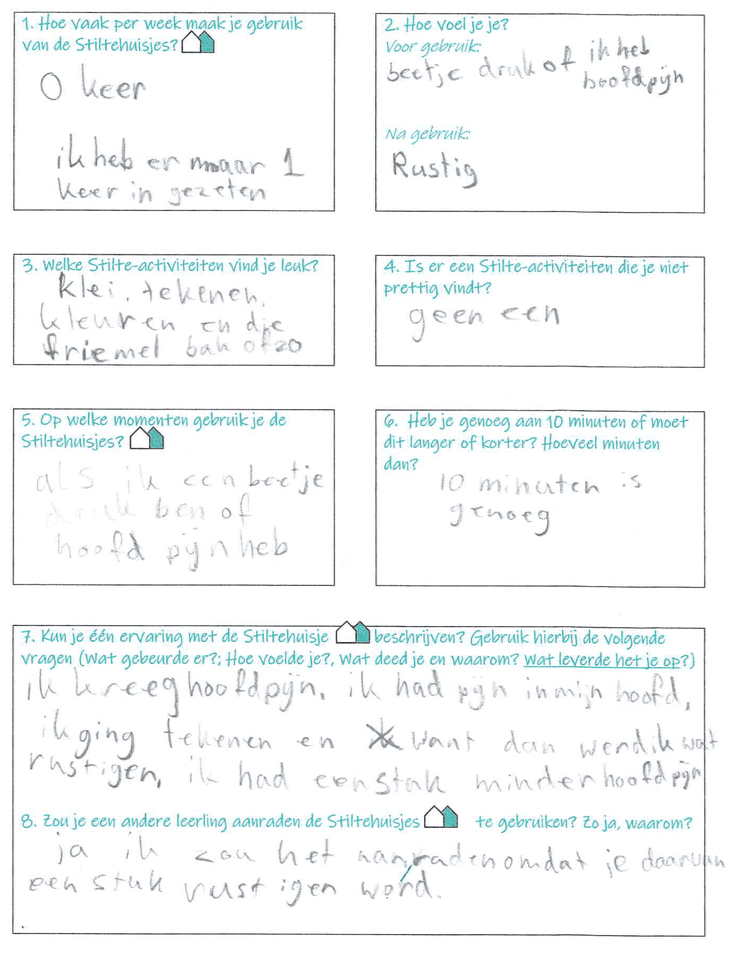 1. Hoe vaak per week maak je gebruik
van de Stiltehuisjes?
0 keer
ik heb er maar 1
keer in gezeten
2. Hoe voel je je?
Voor gebruik:
beetje druk of ik heb
hoofdpijn
Na gebruik:
Rustig
3. Welke Stilte-activiteiten vind je leuk?
Klei, tekenen,
kleuren en die
friemel bak of zo
4. Is er een Stilte-activiteiten die je niet
prettig vindt?
geen een
5. Op welke momenten gebruik je de
Stiltehuisjes?
als ik een beetje
druk ben of
hoofd pijn heb
6. Heb je genoeg aan 10 minuten of moet
dit langer of korter? Hoeveel minuten
dan?
10 minuten is
genoeg
7. Kun je één ervaring met de Stiltehuisje beschrijven? Gebruik hierbij de volgende
vragen (Wat gebeurde er?; Hoe voelde je?, Wat deed je en waarom? Wat leverde het je op?)
ik kreeg hoofdpijn, ik had pijn in mijn hoofd,
ik ging tekenen en want dan werd ik wat
rustigen, ik had een stuk minder hoofdpijn
8. Zou je een andere leerling aanraden de Stiltehuisjes te gebruiken? Zo ja, waarom?
ja ik zou het aanraden omdat je daarvan
een stuk rustigen word.